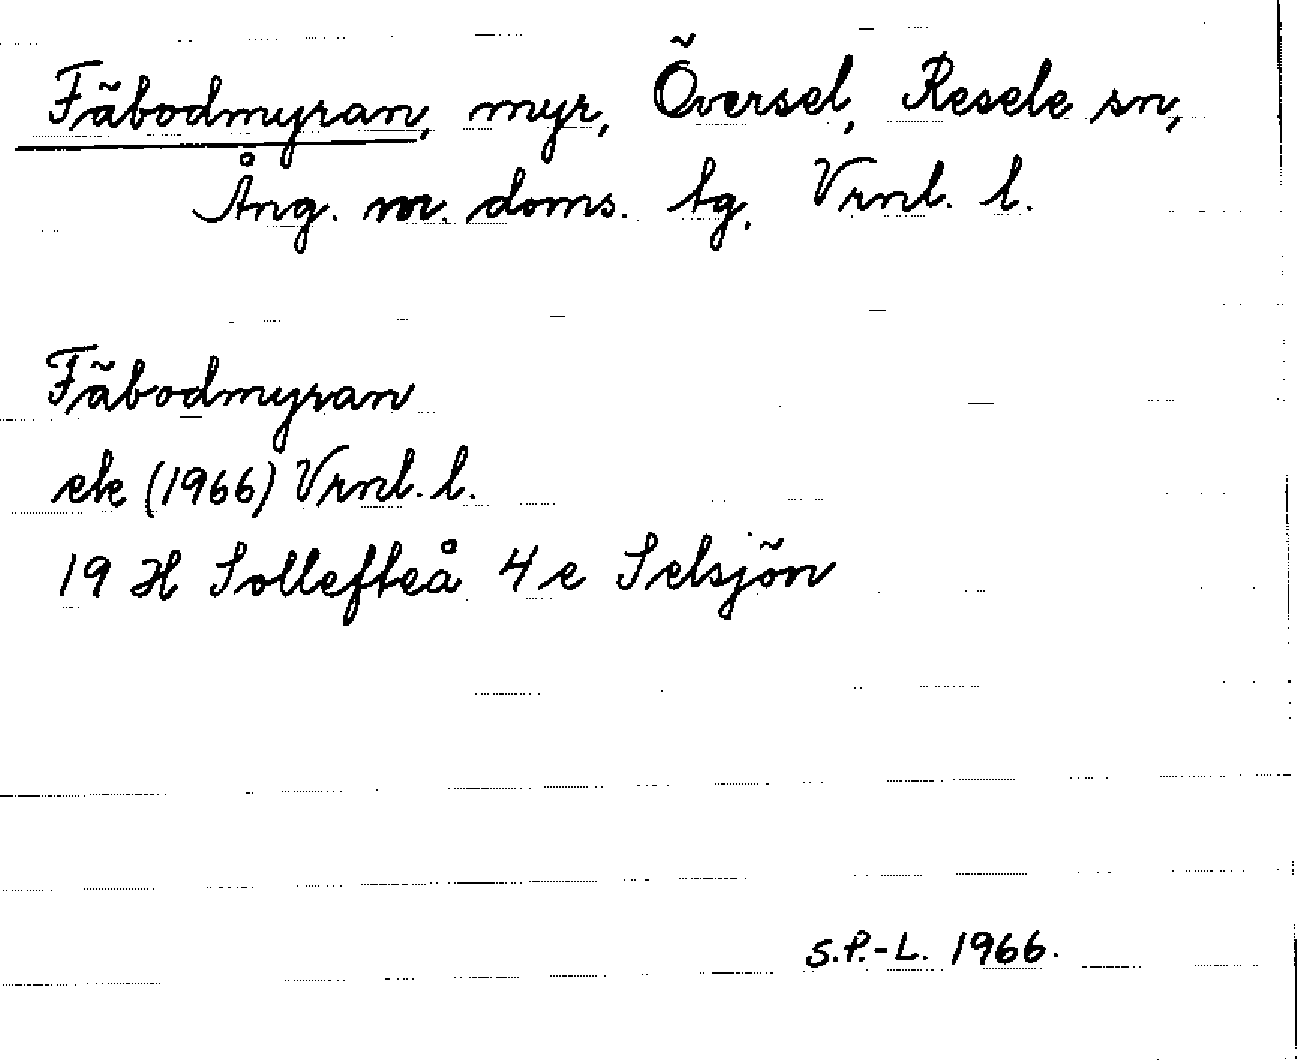 Fäbodmyran, myr, Översel, Resele sn,
Ång. m. doms. tg. Vrnl. l.
Fäbodmyran
ek (1966) Vrnl. l.
19 H Sollefteå 4 e Selsjön
S.P.-L. 1966.